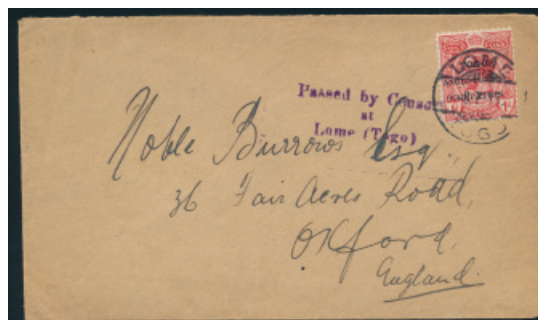 LOME
TOGO
Passed by Censor
at
Lome (Togo)
Noble Burrows Esq.,
36 Fair Acres Road,
Oxford.
England.